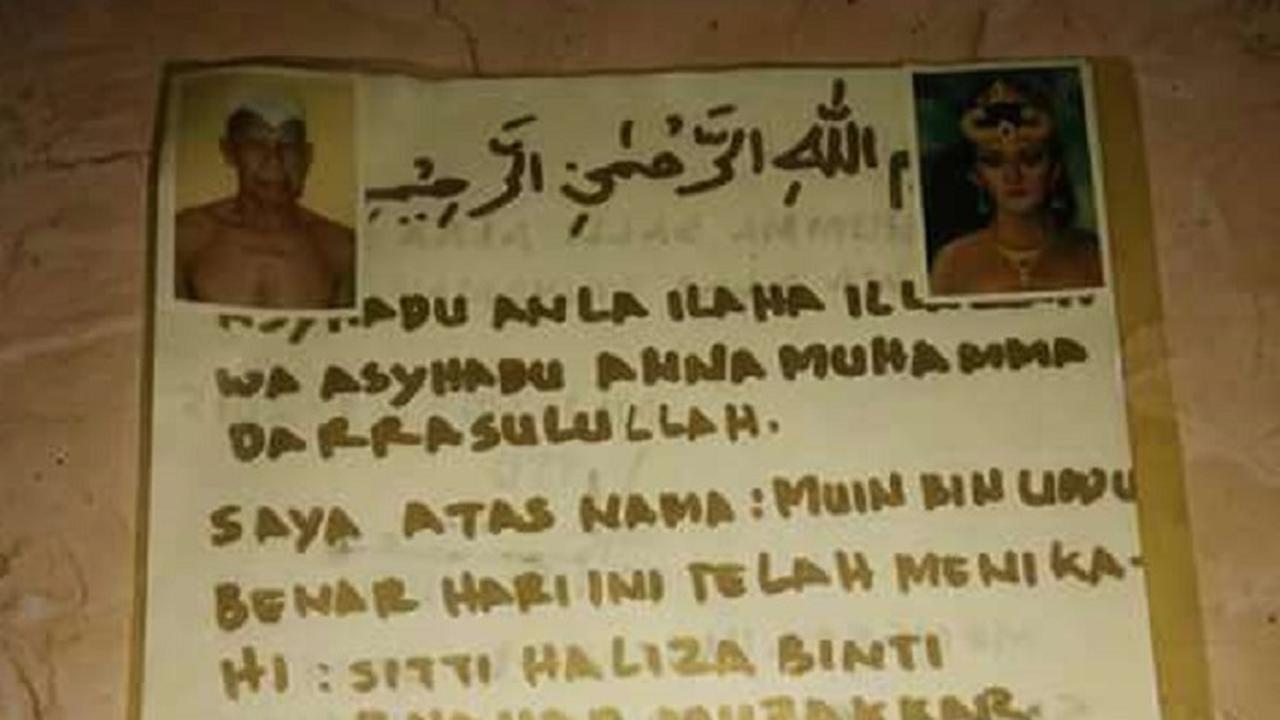 م اللّٰهِ الرَّحْمٰنِ الرَّحِيْمِ
ASYHADU ANLA ILAHA ILLALLAH
WA ASYHADU ANNA MUHAMMA
DARRASULULLAH.
SAYA ATAS NAMA : MUIN BIN UDDU
BENAR HARI INI TELAH MENIKA-
HI : SITTI HALIZA BINTI
MUZAKKAR.